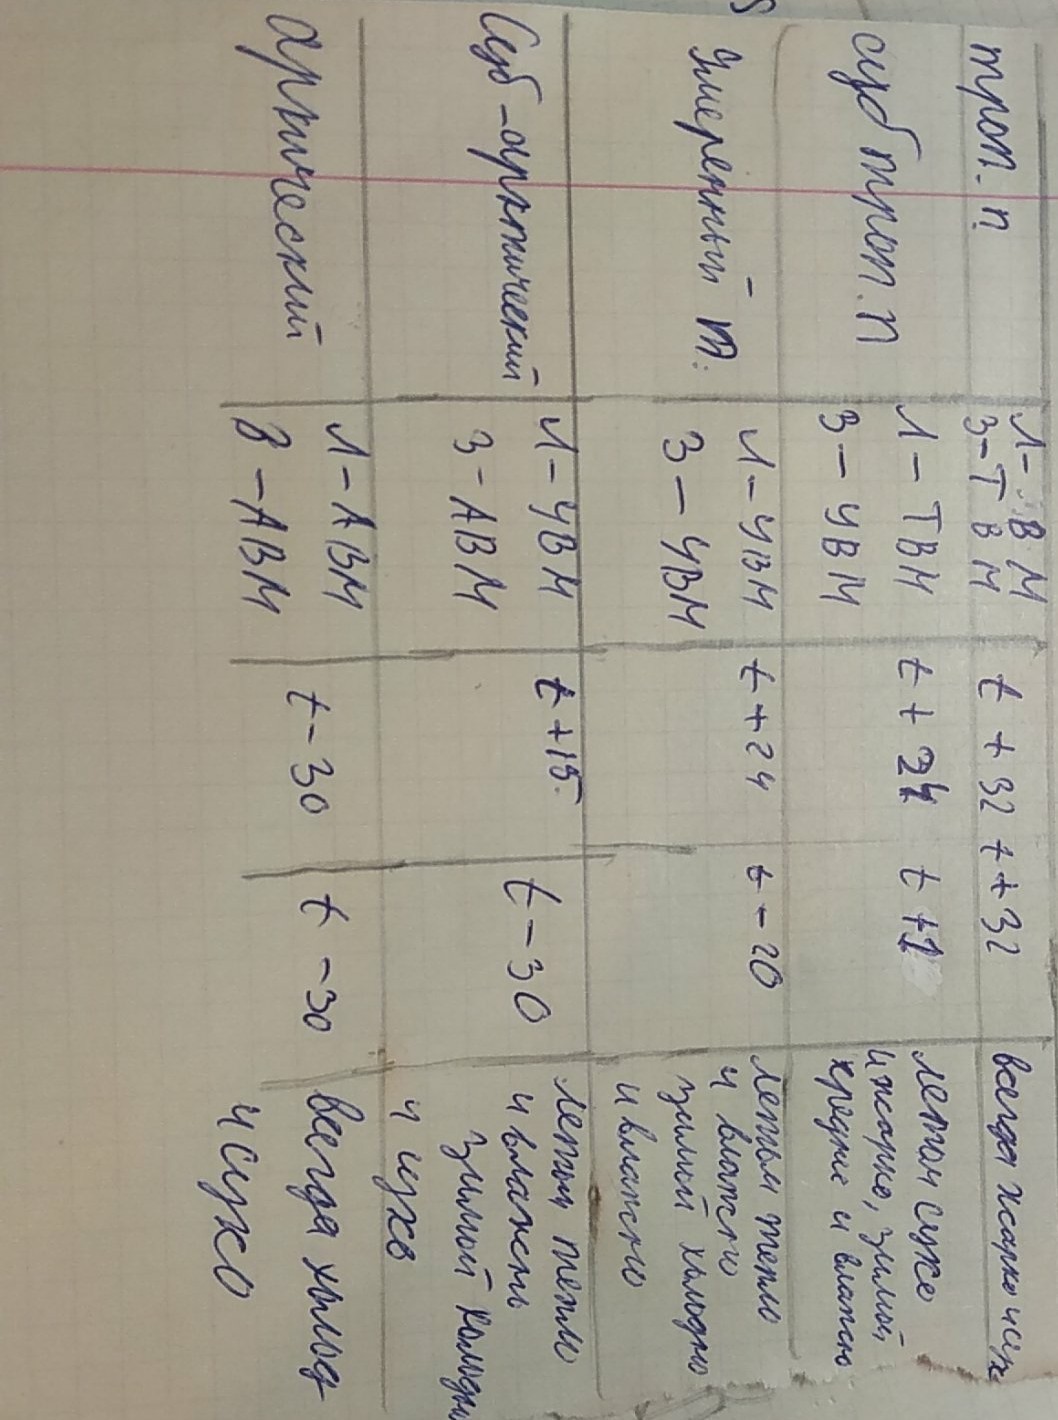 троп. п.
Л- ВМ
З-ТВМ
t + 32
t + 32
всегда жарко и сух
субтроп. п
Л - ТВМ
З - УВМ
t + 24
t +1
летом сухо
и жарко, зимой
влажно
Умеренный т.
Л - УВМ
З - УВМ
t + 24
t - 20
летом тепло
и влажно
зимой холодно
и влажно
Суб-арктический
Л - УВМ
З - АВМ
t +15
t - 30
летом тепло
и влажно
зимой холодн
и сухо
арктический
Л - АВМ
З - АВМ
t - 30
t - 30
всегда холод
и сухо